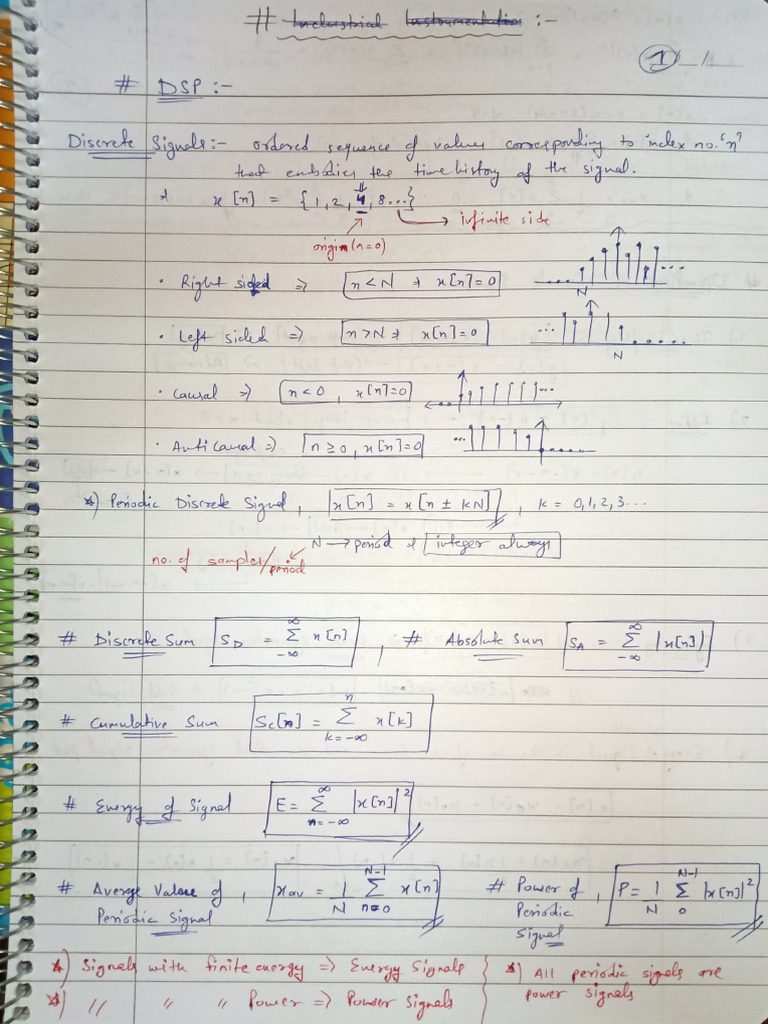 # Industrial Instrumentation :-
1
# DSP :-
Discrete Signals :- ordered sequence of values corresponding to index no. 'n'
that embodies the time history of the signal.
x[n] = {1, 2, 4, 8...} → infinite side
origin (n=0)
· Right sided ⇒ n < N → x[n]=0
N
· Left sided ⇒ n > N → x[n]=0
N
· Causal ⇒ n < 0 , x[n]=0
· Anti Causal ⇒ n ≥ 0 , x[n]=0
*) Periodic Discrete Signal , x[n] = x[n ± kN] , k = 0,1,2,3...
N → period integer always
no. of samples/period
# Discrete Sum S_D = ∑_{-∞}^{∞} x[n] , # Absolute Sum S_A = ∑_{-∞}^{∞} |x[n]|
# Cumulative Sum S_C[n] = ∑_{k=-∞}^{n} x[k]
# Energy of Signal E = ∑_{n=-∞}^{∞} |x[n]|²
# Average Value of Periodic Signal , x_av = 1/N ∑_{n=0}^{N-1} x[n]
# Power of Periodic Signal , P = 1/N ∑_{0}^{N-1} |x[n]|²
*) Signals with finite energy ⇒ Energy Signals
*) " " " Power ⇒ Power Signals
*) All periodic signals are
power signals